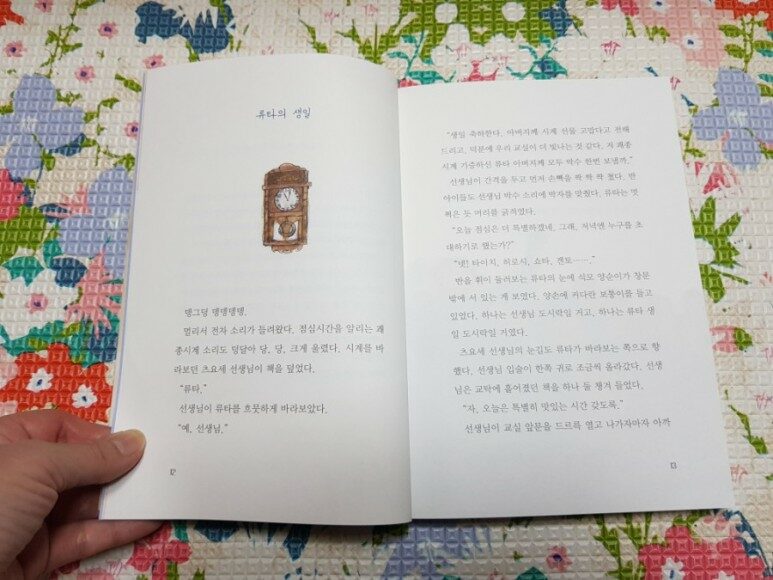 류타의 생일
땡그덩 땡땡땡땡.
멀리서 전차 소리가 들려왔다. 점심시간을 알리는 괘
종시계 소리도 덩달아 당, 당, 크게 울렸다. 시계를 바
라보던 츠요세 선생님이 책을 덮었다.
"류타."
선생님이 류타를 흐뭇하게 바라보았다.
"예, 선생님."
12
"생일 축하한다. 아버지께 시계 선물 고맙다고 전해
드리고, 덕분에 우리 교실이 더 빛나는 것 같다. 저 괘종
시계 기증하신 류타 아버지께 모두 박수 한번 보낼까."
선생님이 간격을 두고 먼저 손뼉을 짝 짝 짝 쳤다. 반
아이들도 선생님 박수 소리에 박자를 맞췄다. 류타는 멋
쩍은 듯 머리를 긁적였다.
"오늘 점심은 더 특별하겠네. 그래, 저녁엔 누구를 초
대하기로 했는가?"
"넷! 타이치, 히로시, 쇼타, 켄토……."
반을 휘이 둘러보는 류타의 눈에 식모 양순이가 창문
밖에 서 있는 게 보였다. 양손에 커다란 보퉁이를 들고
있었다. 하나는 선생님 도시락일 거고, 하나는 류타 생
일 도시락일 거였다.
츠요세 선생님의 눈길도 류타가 바라보는 쪽으로 향
했다. 선생님 입술이 한쪽 귀로 조금씩 올라갔다. 선생
님은 교탁에 흩어졌던 책을 하나 둘 챙겨 들었다.
"자, 오늘은 특별히 맛있는 시간 갖도록."
선생님이 교실 앞문을 드르륵 열고 나가자마자 아까
13